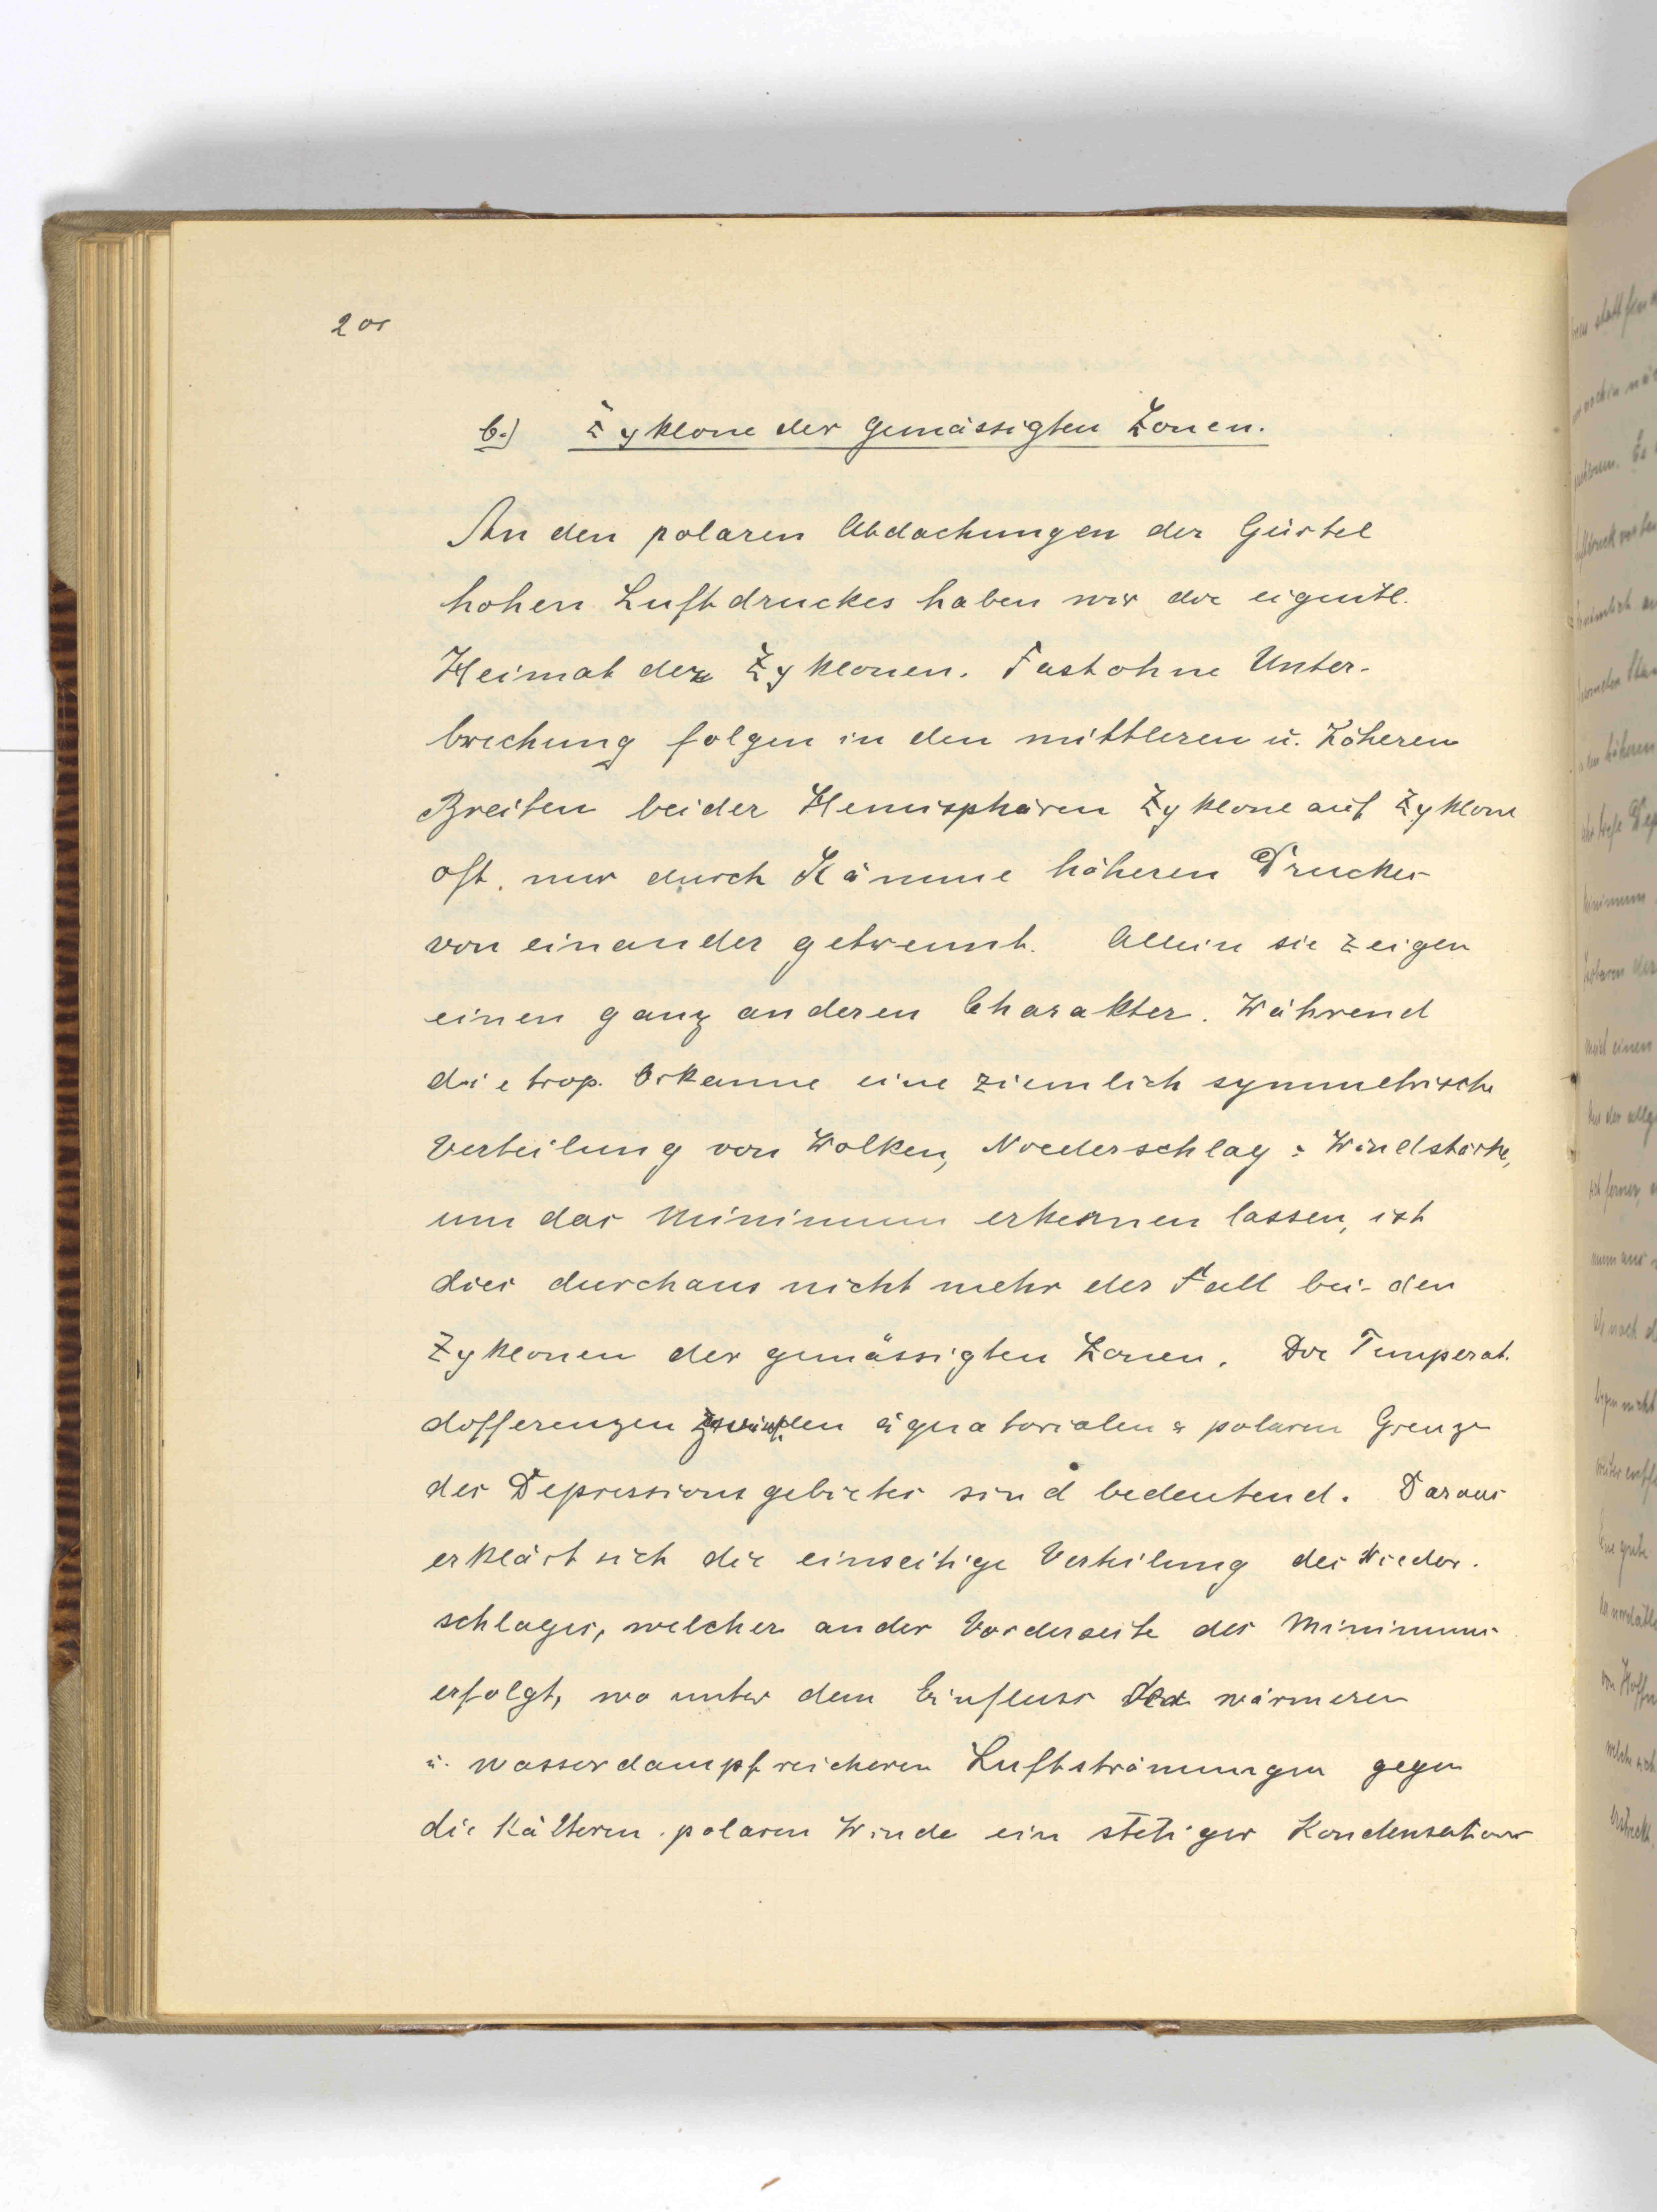 200
b.) Zyklone der gemässigten Zonen.
An den polaren Abdachungen der Gürtel
hohen Luftdruckes haben wir die eigentl.
Heimat der Zyklonen. Fast ohne Unter-
brechung folgen in den mittleren u. höheren
Breiten beider Hemisphären Zyklone auf Zyklone
oft. nur durch Kämme höheren Druckes
von einander getrennt. Allein sie zeigen
einen ganz anderen Charakter. Während
die trop. Orkanne eine ziemlich symmetrische
Verteilung von Wolken, Niederschlag & Windstärke,
um das Minimum erkennen lassen, ist
dies durchaus nicht mehr der Fall bei den
Zyklonen der gemässigten Zonen. Die Temperat.
differenzen zwisch. den äquatorialen & polaren Grenze
des Depressionsgebietes sind bedeutend. Daraus
erklärt sich die einseitige Verteilung des Nieder-
schlages, welcher an der Vorderseite des Minimums
erfolgt, wo unter dem Einfluss der wärmeren
u. wasserdampfreicheren Luftströmungen gegen
die kälteren polaren Winde ein stetiger Kondensations